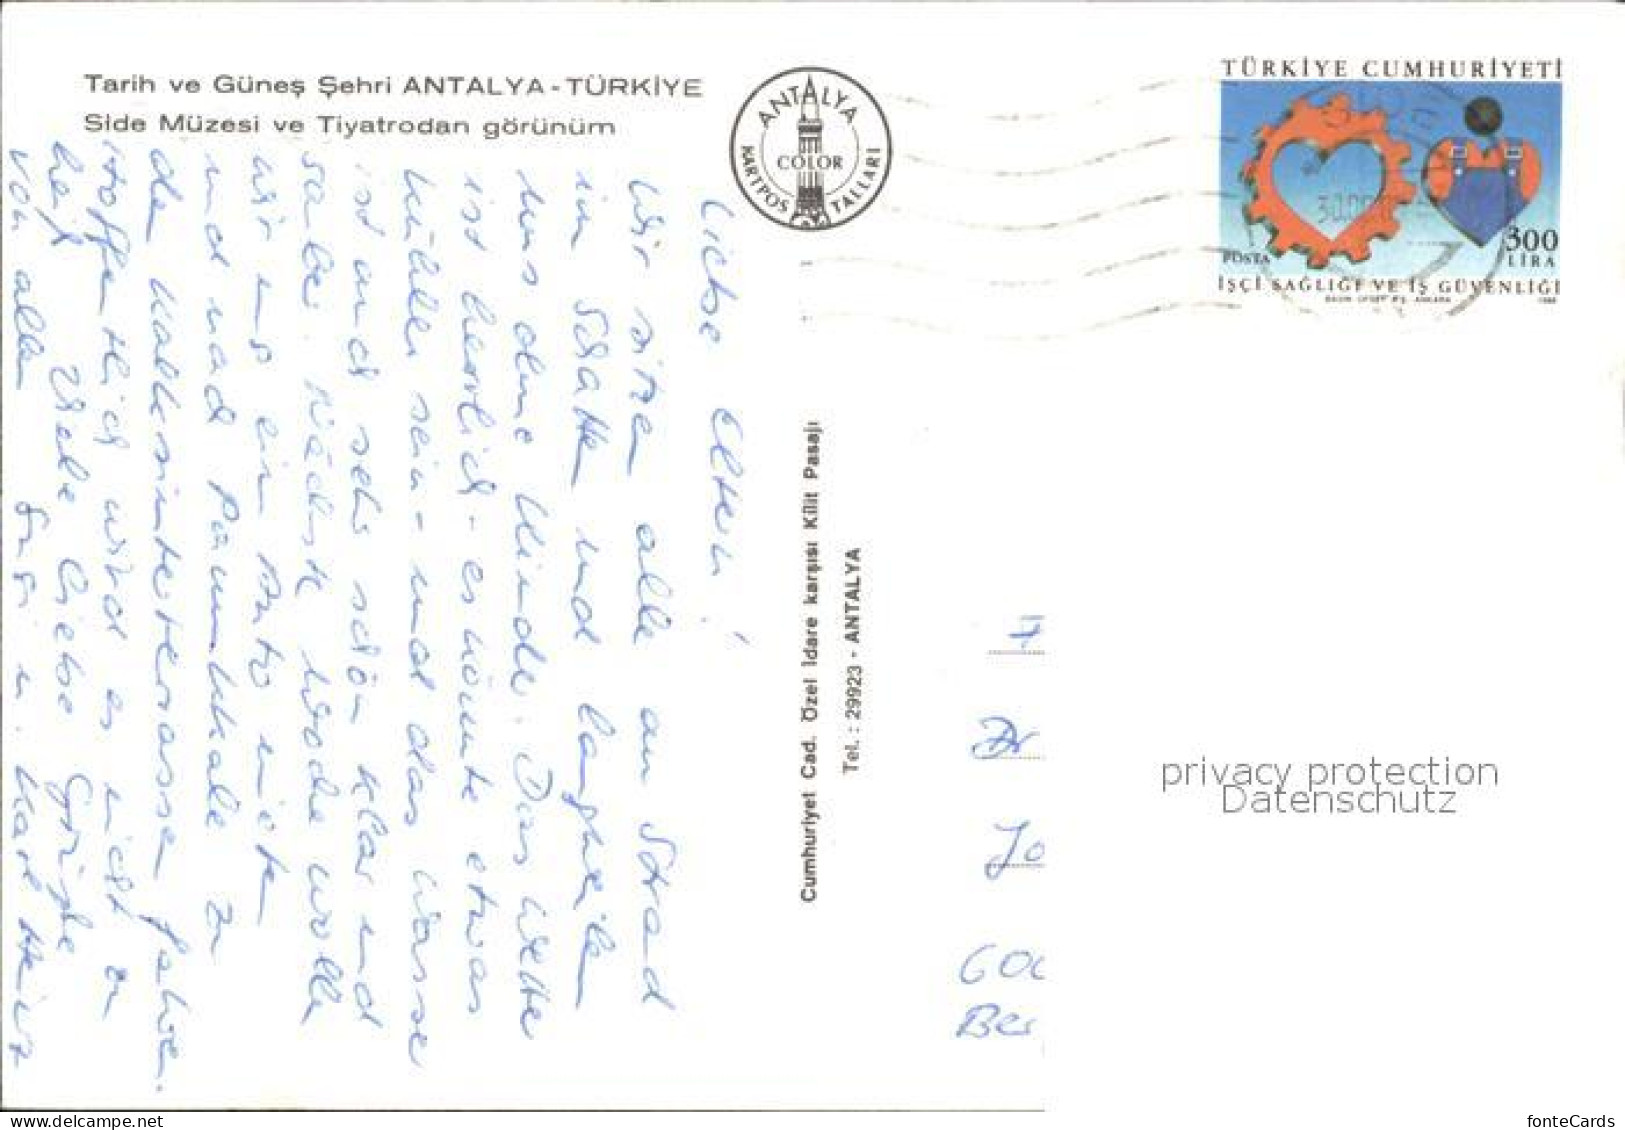 Tarih ve Güneş Şehri ANTALYA - TÜRKİYE
Side Müzesi ve Tiyatrodan görünüm
ANTALYA
COLOR
KARTPOSTALLARI
TÜRKİYE CUMHURİYETİ
POSTA
300
LİRA
İŞÇİ SAĞLIĞI VE İŞ GÜVENLİĞİ
Liebe Eltern!
Wir sitzen alle am Strand
im Schatten und langweilen
uns ohne Kinder. Das Wetter
ist herrlich - es könnte etwas
kühler sein - und das Wasser
ist auch sehr schön klar und
sauber. Nächste Woche wollen
wir uns ein Auto mieten
und nach Pamukkale zu
den Kalksinterterrassen fahren.
Hoffentlich wird es nicht zu
heiß. Viele liebe Grüße
von allen
Cumhuriyet Cad. Özel İdare karşısı Kilit Pasajı
Tel.: 29923 - ANTALYA
Jo
600
Ber
privacy protection
Datenschutz
delcampe.net
fonteCards